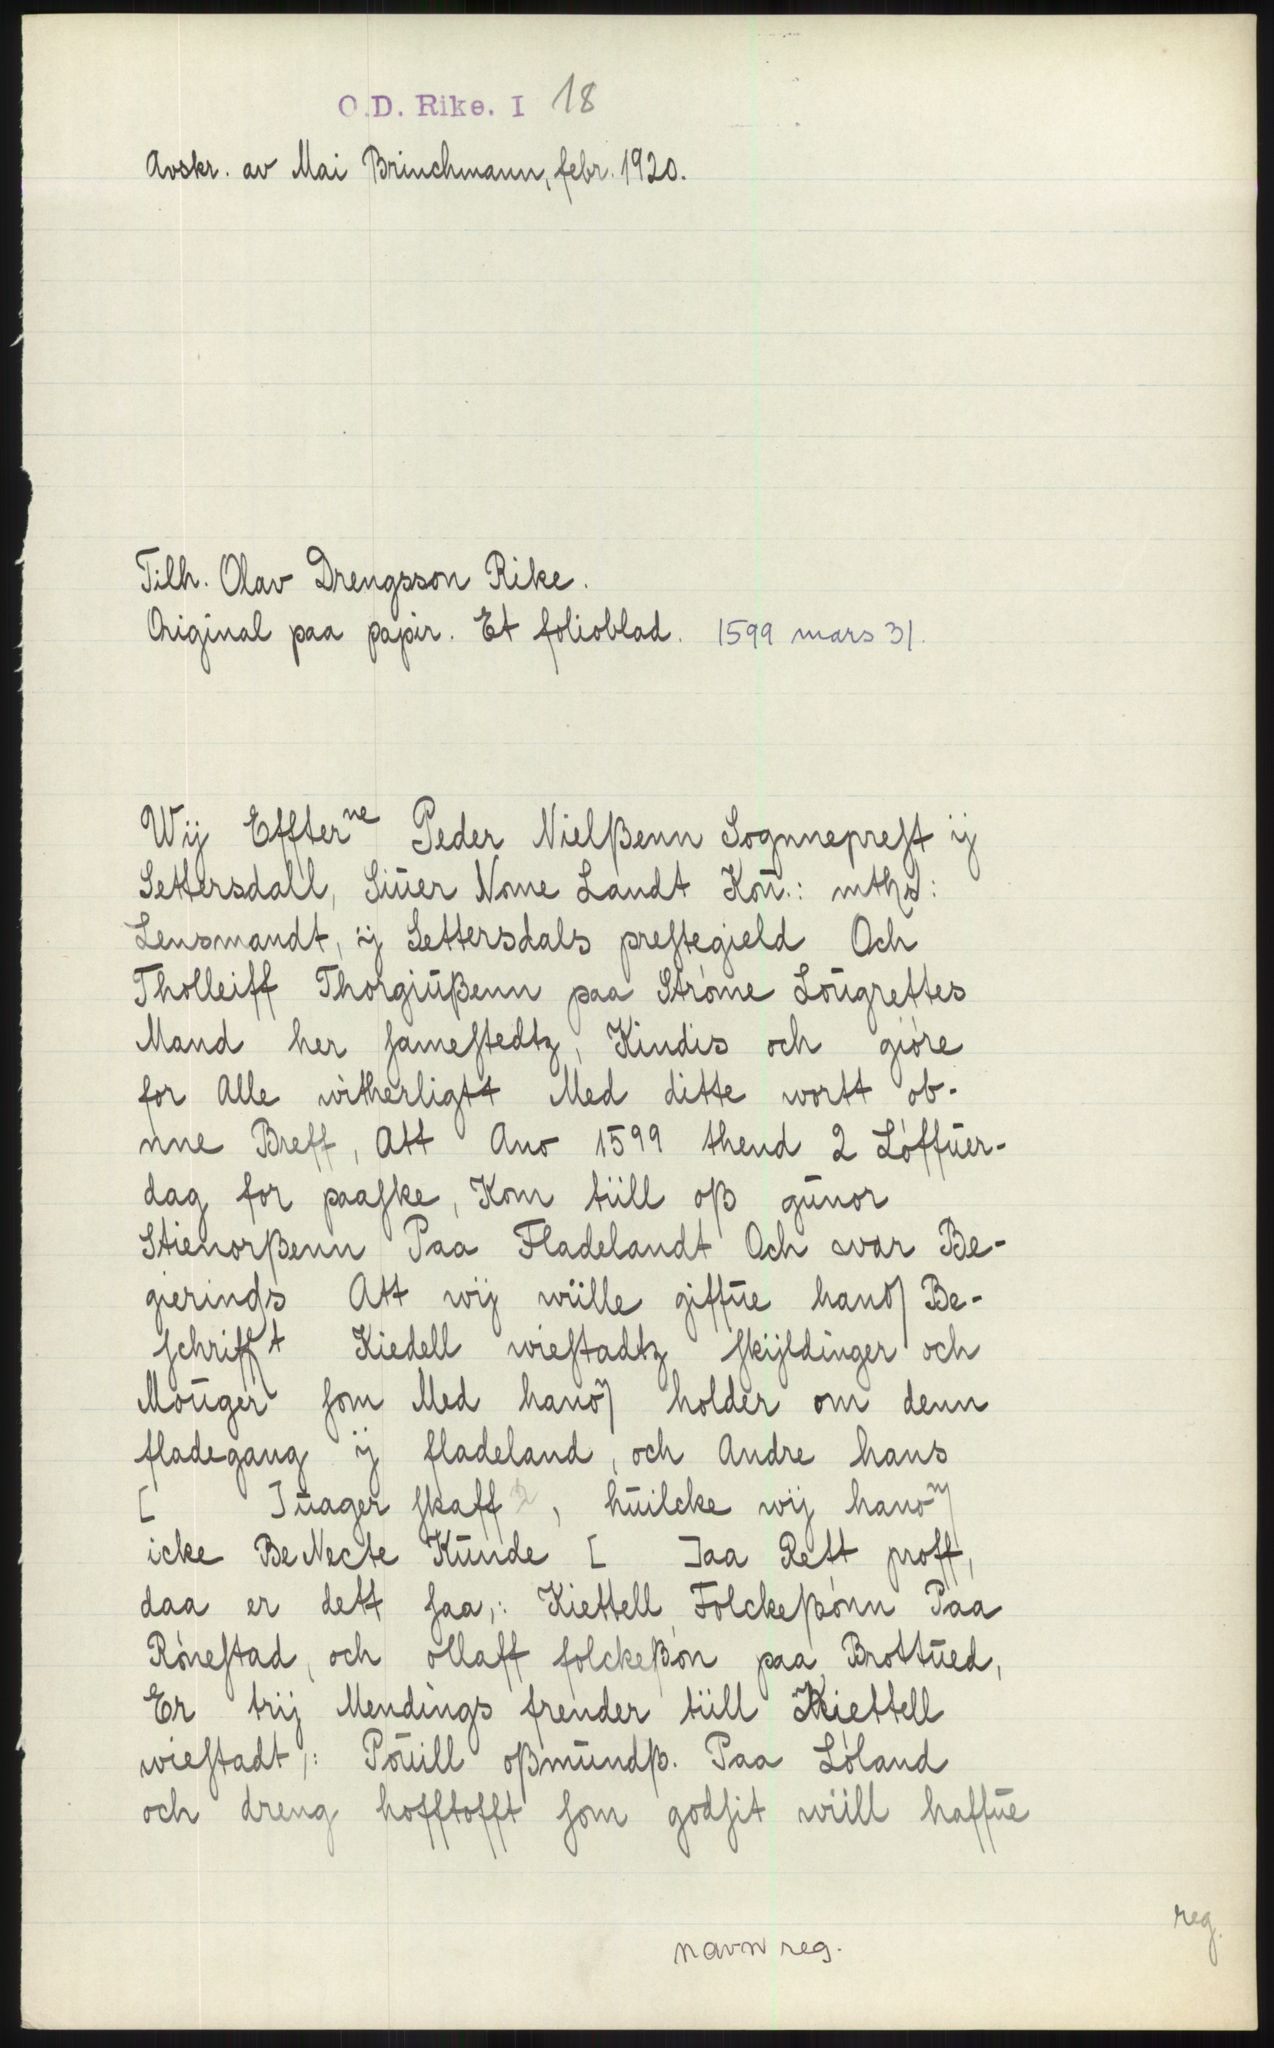 O.D. Rike. I 18
Avskr. av Mai Brinchmann, febr. 1920.
Tilh. Olav Drengsson Rike.
Original paa papir. Et folioblad. 1599 mars 31.
Wij Effterne Peder Nielßenn Sognneprest ij
Settersdall, Siuer Nome Landt Kou.: mtks:
Lensmandt, ij Settersdals prestegield Och
Tholleiff Thorgiußenn paa Strøme Lougrettes
Mand her samestedtz, Kindis och gjøre
for Alle witherligtt Med ditte wortt ob-
nne Breff, Att Ano 1599 thend 2 Løffuer-
dag for paaske, Kom tiill oß gunor
Stienorßenn Paa Fladelandt Och war Be-
gierinds Att wij wiille giffue hanom Be-
schrifft Kiedell wiestadtz skijldinger och
Mouger som Med hanom holder om denn
fladegang ij fladeland, och Andre hans
[ ]uager skaff 2, huilcke wij hanom
icke BeNecte Kunde [ ]aa Rett proff,
daa er dett saa,: Kiettell Folckeßønn Paa
Rønestad, och ollaff folckeßøn paa Brottued,
Er trij Mendings frender tiill Kiettell
wiestadt,: Pouill oßmundß. Paa Løland
och dreng hofftofft som godsit wiill haffue
reg.
navn reg.